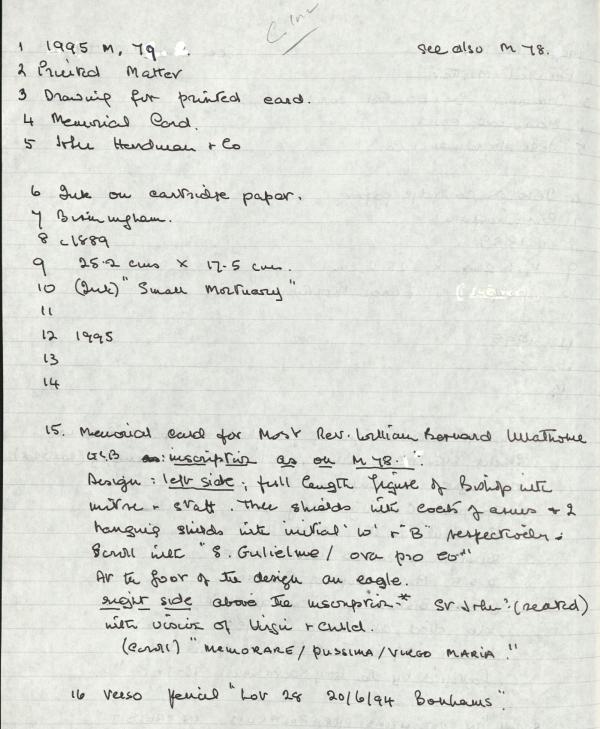 1 1995 M, 79. see also M 78.
2 Printed Matter
3 Drawing for printed card.
4 Memorial Card.
5 John Hardman + Co
6 Ink on cartridge paper.
7 Birmingham.
8 c1889
9 25.2 cms × 17.5 cms.
10 (Ink) "Small Mortuary"
11
12 1995
13
14
15. Memorial card for Most Rev. William Bernard Ullathorne
: inscription as on M 78.
Design : left side ; full length figure of Bishop with
mitre + staff. Three shields with coats of arms + 2
hanging shields with initial 'W' + "B" respectively.
Scroll with "S. Gulielme / ora pro eo"
At the foot of the design an eagle.
right side above the inscription * St John : (seated)
with vision of Virgin + child.
(scroll) "MEMORARE / PIISSIMA / VIRGO MARIA."
16 Verso pencil "Lot 28 20/6/94 Bonhams".